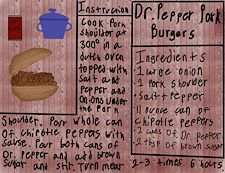 Instruction
Cook Pork
shoulder at
300° in a
dutch oven
topped with
salt and
Pepper and
Onions under
the Pork
Shoulder. Pour whole can
of chipotle peppers with
sause. Pour both cans of
Dr. Pepper and add brown
Sugar and stir. Turn meat
2-3 times. 6 hours
Dr. Pepper Pork
Burgers
Ingredients
• 1 large onion
• 1 Pork shoulder
• Salt + Pepper
• 11 ounce can of
chipotle peppers
• 2 cans of Dr. Pepper
• 2 tbsp of brown sugar